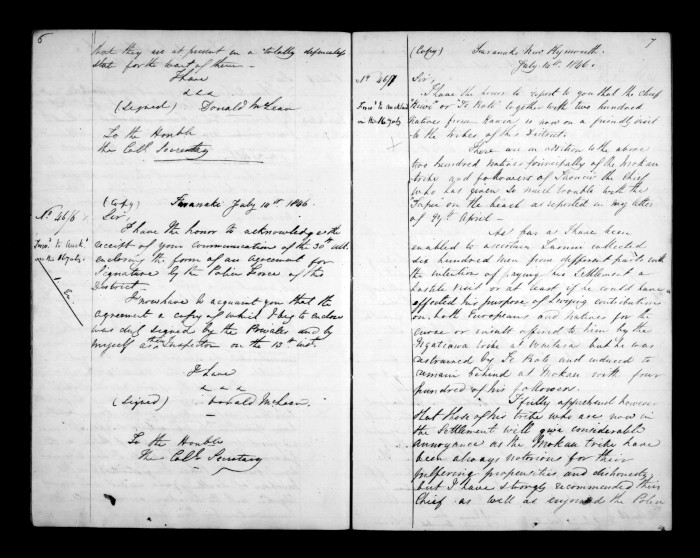 6
that they are at present in a totally defenceless
state for the want of them –
I have
&c &c &c
(Signed) Donald McLean
To the Honble
the Coll Secretary
No 46/6
(Copy) Taranaki July 14th 1846.
Sir,
I have the honor to acknowledge the
receipt of your communication of the 30th ult.
enclosing the form of an agreement for
Signature by the Police Force of this
District.
I now have to acquaint you that the
agreement a copy of which I beg to enclose
was duly signed by the Privates and by
myself as the Inspector on the 13th inst.
I have
(Signed) Donald McLean
To the Honble
The Coll Secretary
7
(Copy) Taranaki New Plymouth.
July 14th 1846.
No 46/7
on the 16 July
Sir,
I have the honor to report to you that the Chief
"Kiwi" or "Te Kati" together with two hundred
Natives from Kawia is now on a friendly visit
to the tribes of this District.
There are in addition to the above
two hundred natives principally of the Mokau
tribe and followers of the Chief
who has given so much trouble with the
on the beach as reported in my letter
of April –
As far as I have been
enabled to ascertain collected
six hundred men from different parts with
the intention of paying this Settlement a
hostile visit or at least if he could have
effected his purpose of levying contributions
on both Europeans and natives for the
curse or insult offered to him by the
Ngatiawa tribe at Waitara but he was
restrained by Te Kati and induced to
remain behind at Mokau with four
hundred of his followers.
I fully apprehend however
that those of his tribe who are now in
the Settlement will give considerable
annoyance as the Mokau tribe have
been always notorious for their
pilfering propensities and dishonesty
but I have strongly recommended their
Chief as well as enjoined the Police